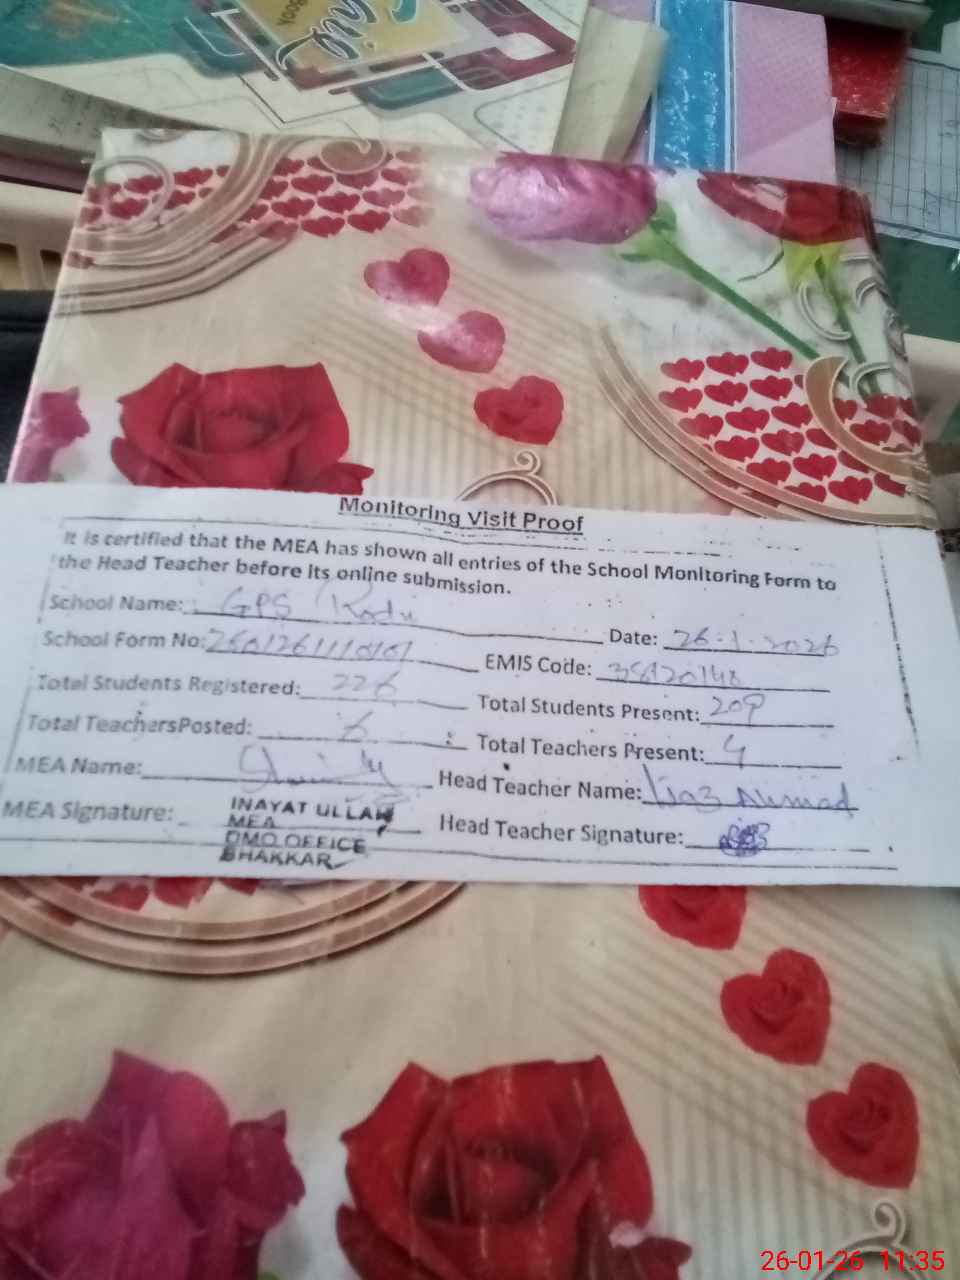 Monitoring Visit Proof
It is certified that the MEA has shown all entries of the School Monitoring Form to
the Head Teacher before its online submission.
School Name: GPS Kodu Date: 26.1.2026
School Form No: EMIS Code:
Total Students Registered: 226 Total Students Present: 209
Total TeachersPosted: Total Teachers Present: 4
MEA Name: Head Teacher Name: Ahmad
MEA Signature: INAYAT ULLAH Head Teacher Signature:
MEA
DMO OFFICE
BHAKKAR
26-01-26 11:35